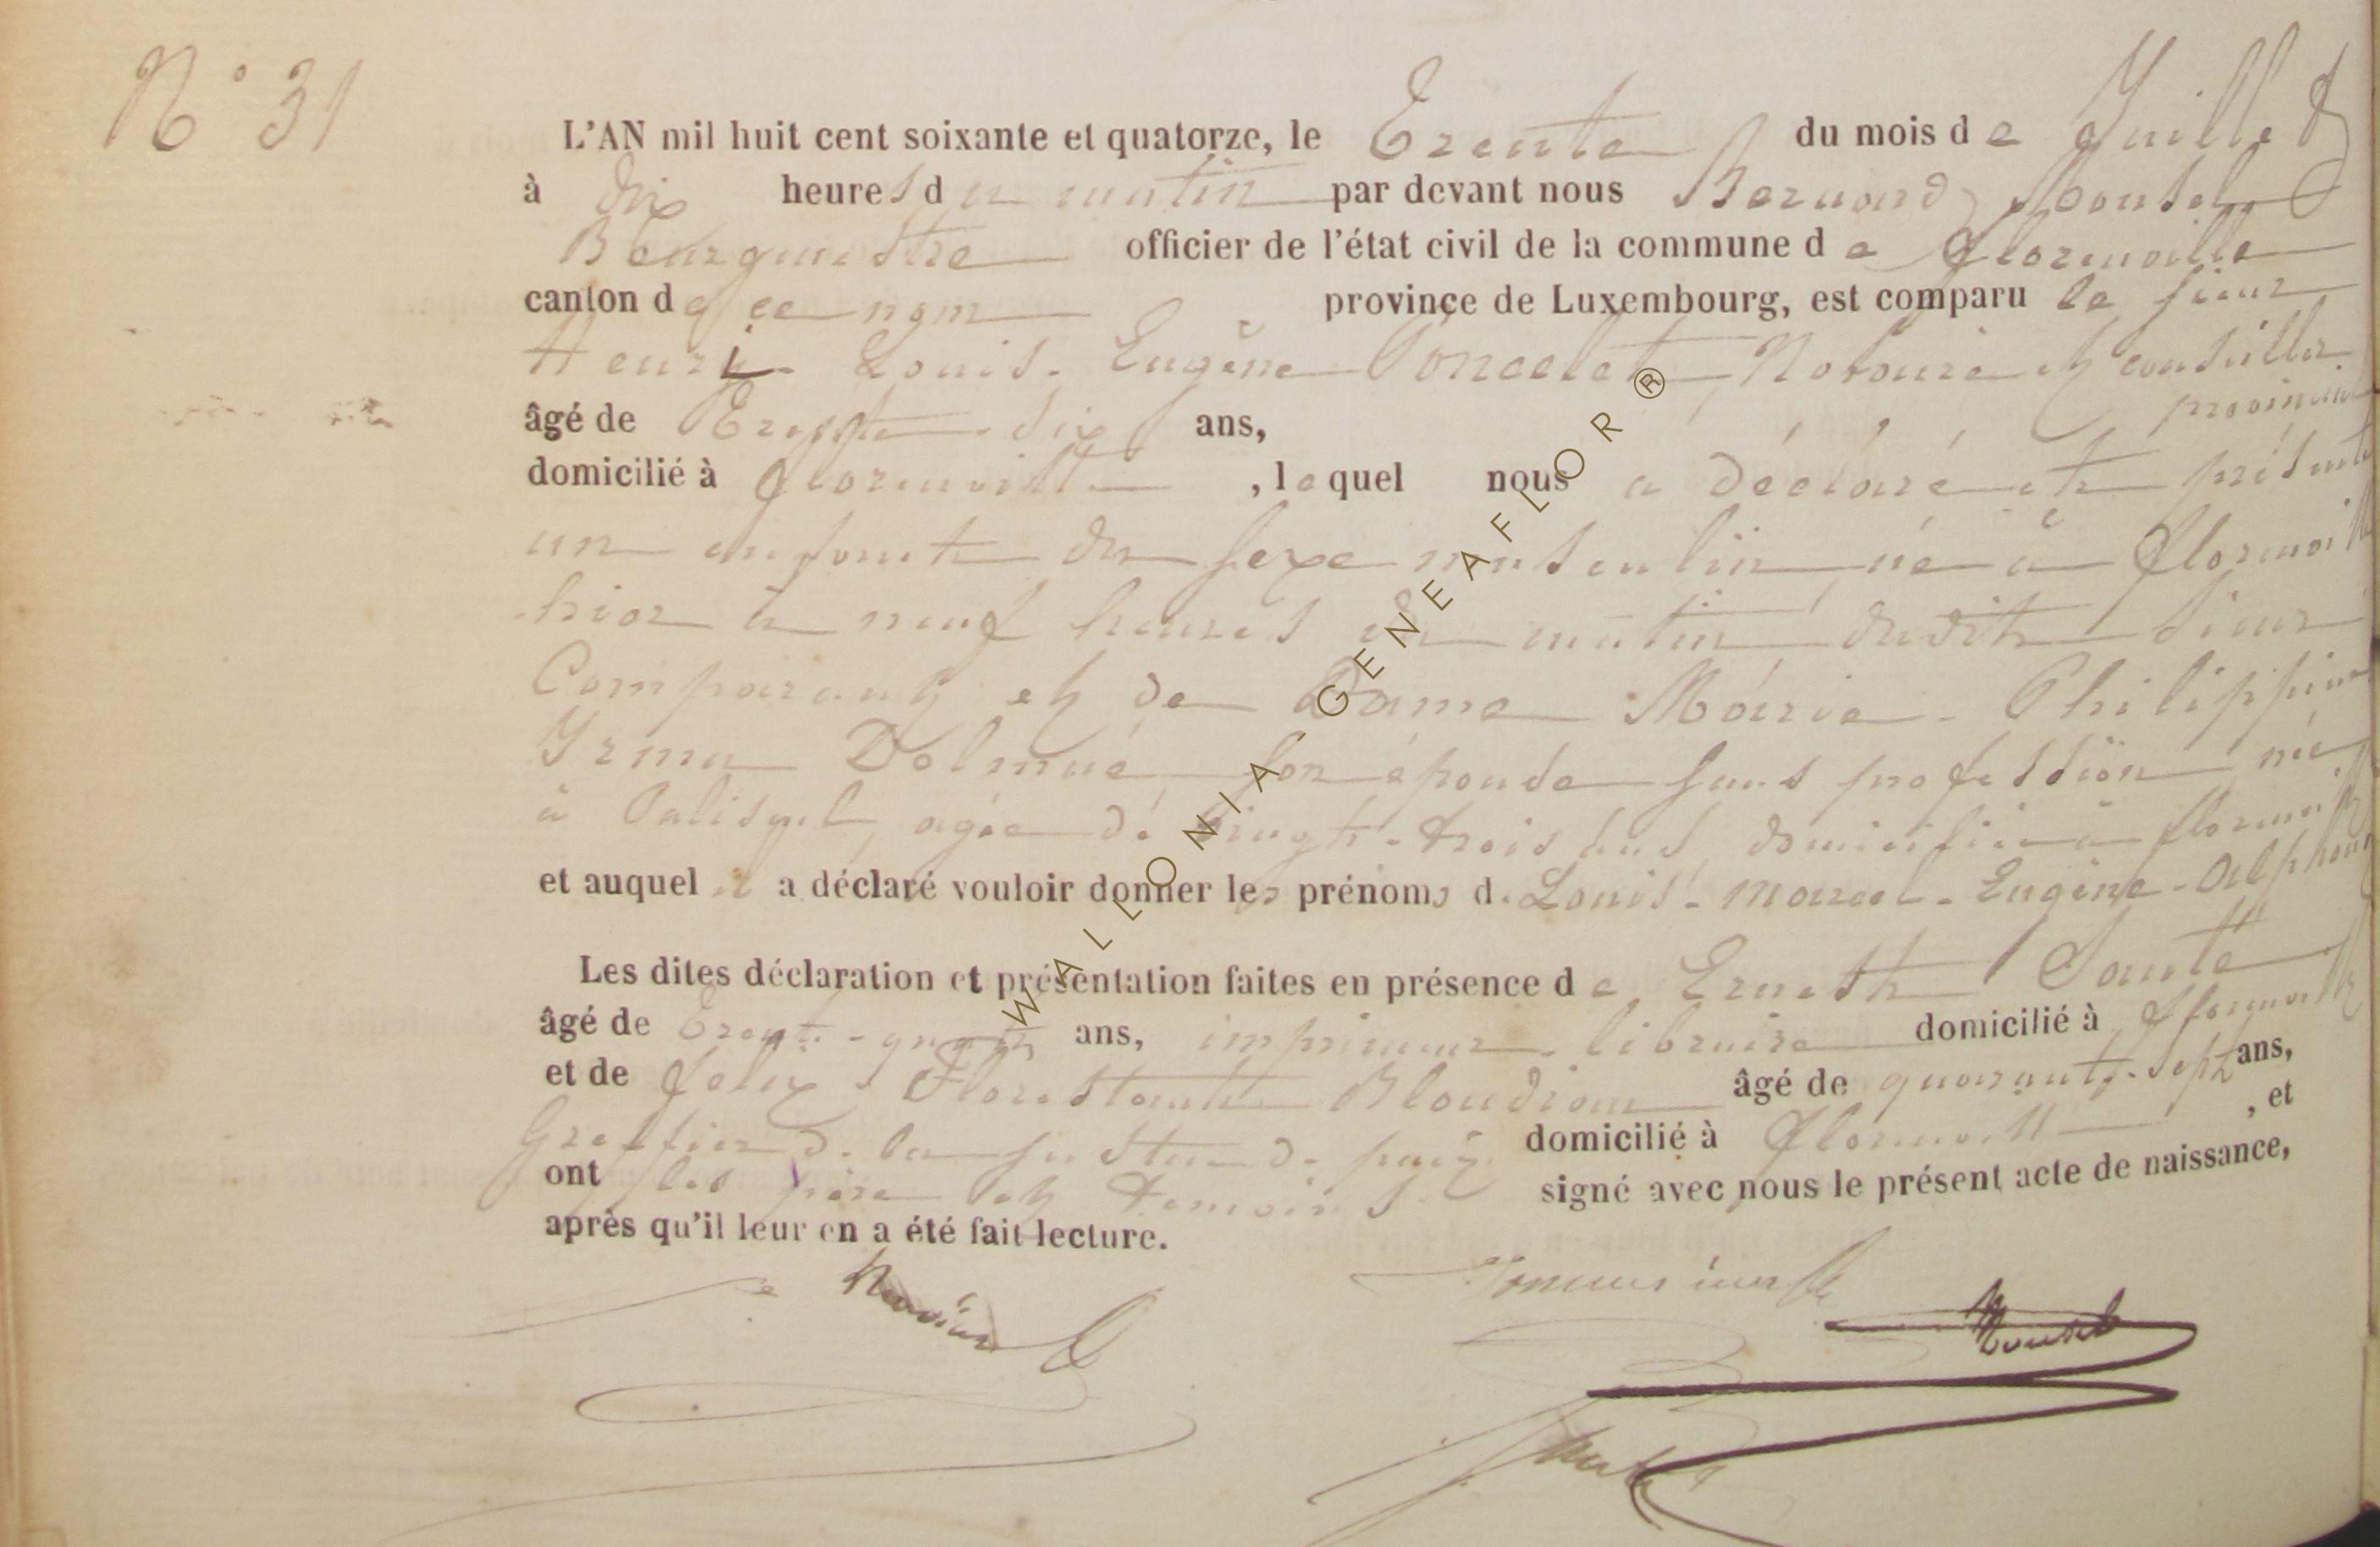 N° 31
L'AN mil huit cent soixante et quatorze, le Trente du mois de Juillet
à dix heures du matin par devant nous Bernard
Bourgmestre officier de l'état civil de la commune de Florenville
canton de ce nom province de Luxembourg, est comparu le sieur
Henri. Louis. Eugène Poncelet, Notaire et conseiller
provincial
âgé de Trente-six ans,
domicilié à Florenville, lequel nous a déclaré et présenté
un enfant du sexe masculin né à Florenville
hier à neuf heures du matin dudit sieur
Comparant et de Dame Marie-Philippine
Irma son épouse sans profession née
à Paliseul, agée de vingt-trois ans domiciliée à Florenville
et auquel il a déclaré vouloir donner les prénoms d. Louis-Marcel-Eugène-Alphonse
Les dites déclaration et présentation faites en présence de Ernest
âgé de Trente-quatre ans, imprimeur libraire domicilié à Florenville
et de Felix âgé de quarante-sept ans,
Greffier de la justice de paix domicilié à Florenville, et
ont les père et témoins signé avec nous le présent acte de naissance,
après qu'il leur en a été fait lecture.
WALLONIA GENEAFLOR ®